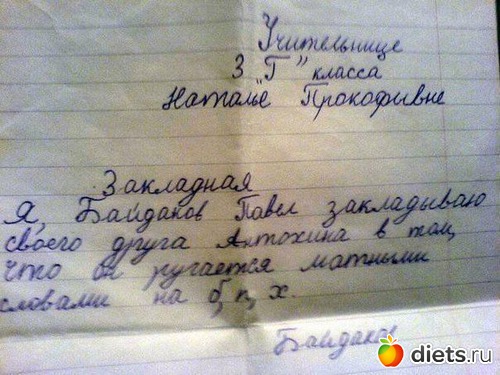 Учительнице
3 „Г" класса
Наталье Прокофивне
Закладная
Я, Байдаков Павел закладываю
своего друга Антохина в том,
что он ругается матными
словами на б, п, х.
Байдаков
diets.ru